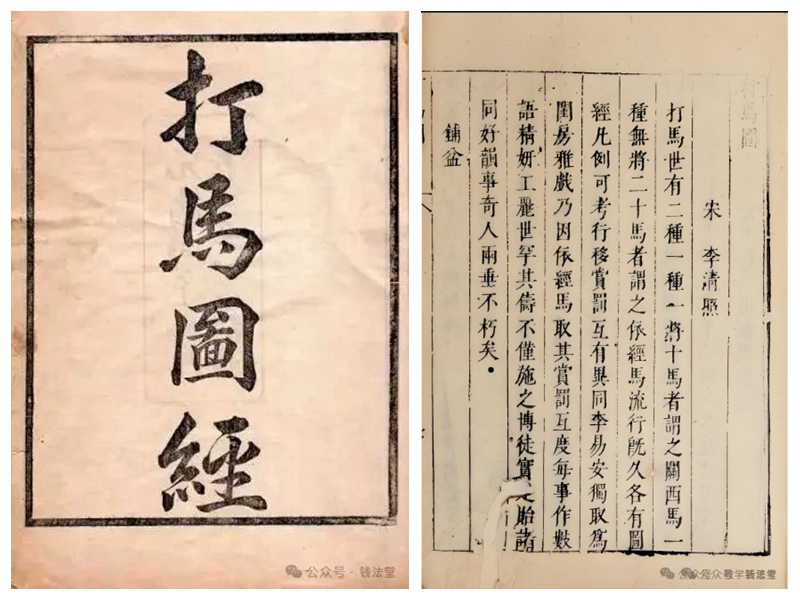 打馬圖經
公众号·钱法堂
打馬圖
宋 李清照
打馬世有二種一種一將十馬者謂之關西馬一
種無將二十馬者謂之依經馬流行旣久各有圖
經凡例可考行移賞罰互有異同李易安獨取爲
閨房雅戲乃因依經馬取其賞罰互度每事作數
語精妍工麗世罕其儔不僅施之博徒實足貽諸
同好韻事奇人兩垂不朽矣
鋪盆